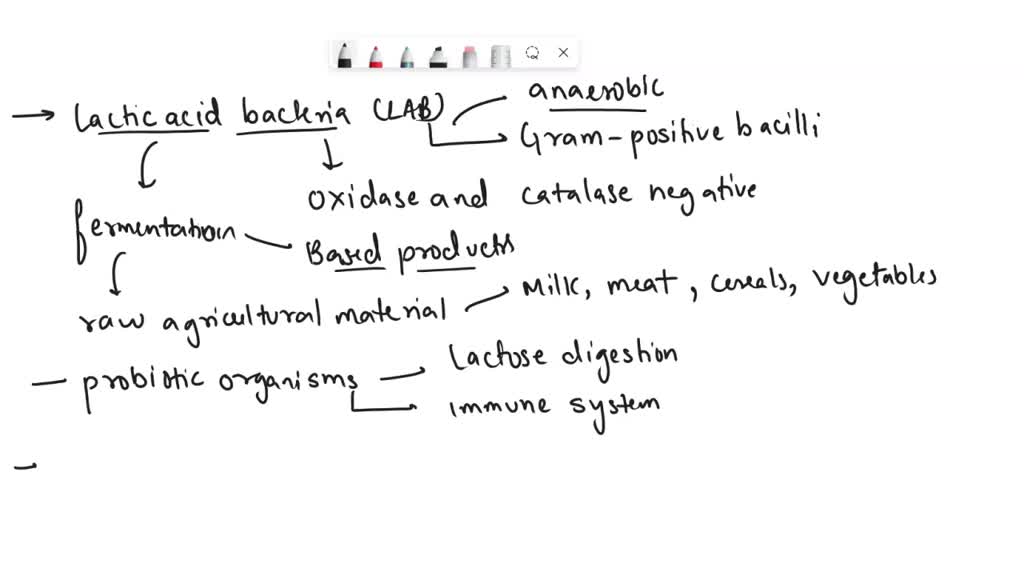 → Lactic acid bacteria (LAB)
anaerobic
Gram-positive bacilli
oxidase and catalase negative
fermentation
Based products
raw agricultural material
Milk, meat, cereals, vegetables
- probiotic organisms
Lactose digestion
immune system
-